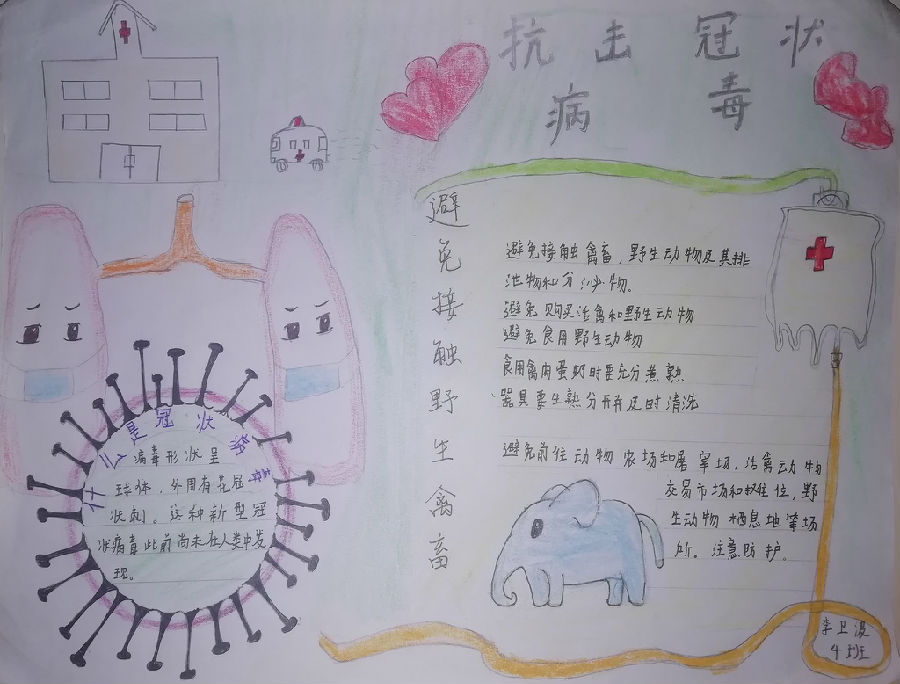 抗击冠状
病毒
什么是冠状病毒
病毒形状呈
球体，外周有花冠
状刺。这种新型冠
状病毒此前尚未在人类中发
现。
避免接触野生禽畜
避免接触禽畜，野生动物及其排
泄物和分泌物。
避免购买活禽和野生动物
避免食用野生动物
食用禽肉蛋奶时要充分煮熟
器具要生熟分开并及时清洗
避免前往动物农场和屠宰场，活禽动物
交易市场和摊位，野
生动物栖息地等场
所。注意防护。
4班